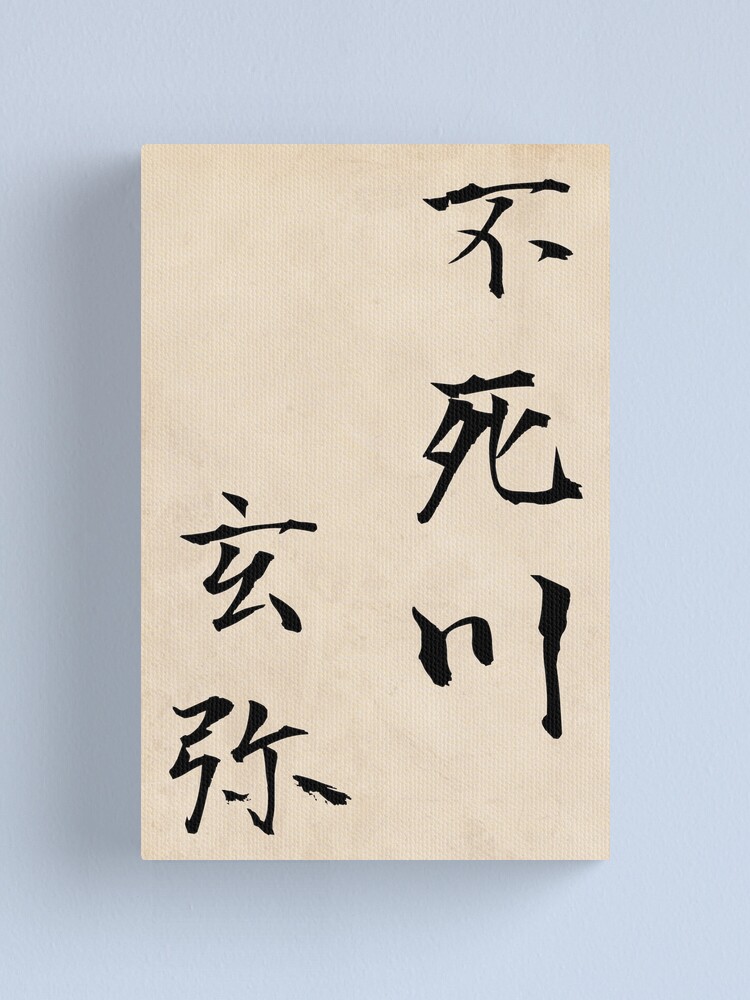 不死川
玄弥